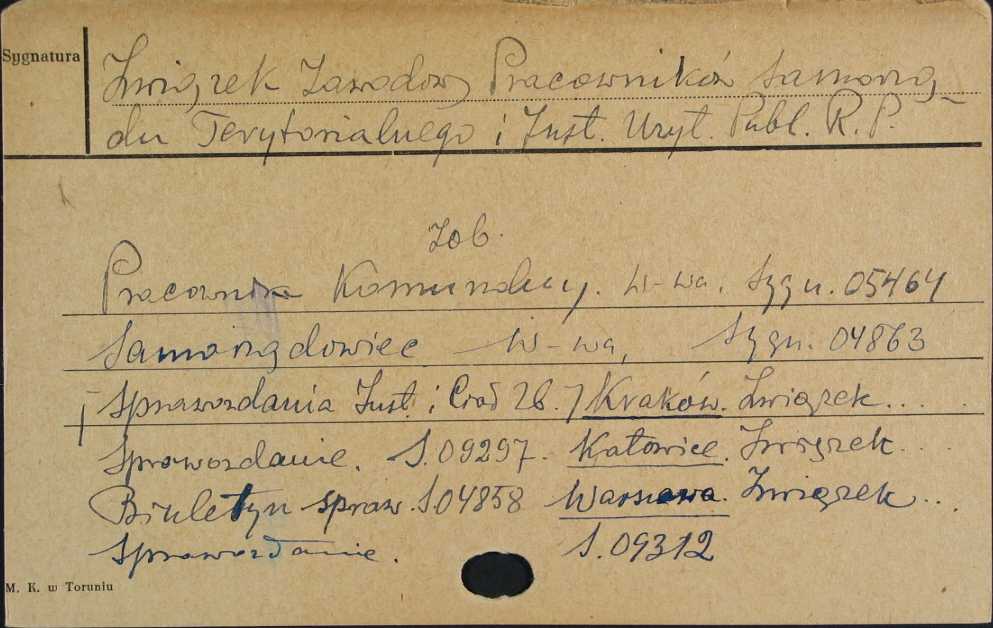 Sygnatura
Związek Zawodowy Pracowników Samorzą-
du Terytorialnego i Inst. Użyt. Publ. R. P.
Zob.
Pracownik Komunalny. W-wa. Sygn. 05464
Samorządowiec W-wa, Sygn. 04863
Sprawozdania Inst. i Kraków. Związek....
Sprawozdanie. S. 09297. Katowice. Związek....
Biuletyn spraw. S. 04858 Warszawa. Związek...
Sprawozdanie. S. 09312
M. K. w Toruniu